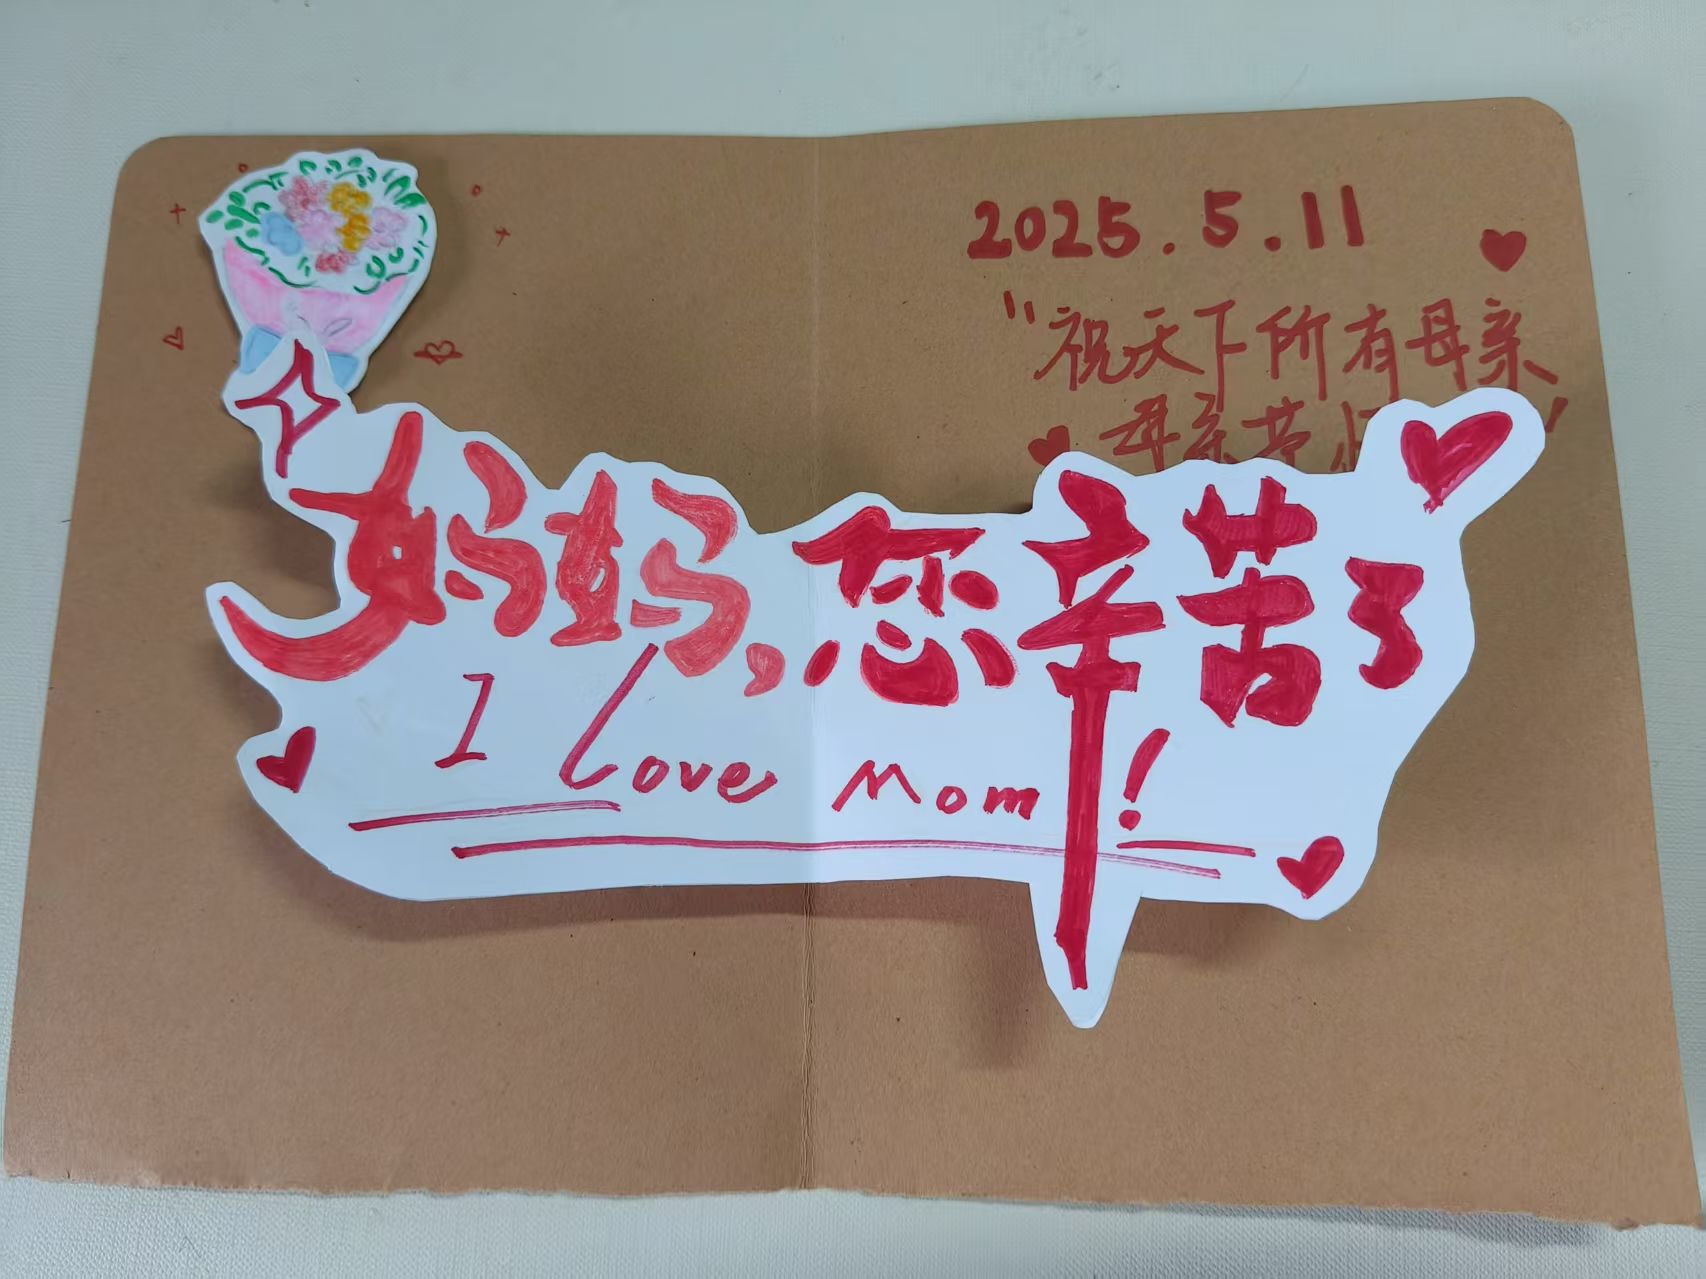 2025.5.11
"祝天下所有母亲
母亲节
妈妈,您辛苦了
I Love Mom!